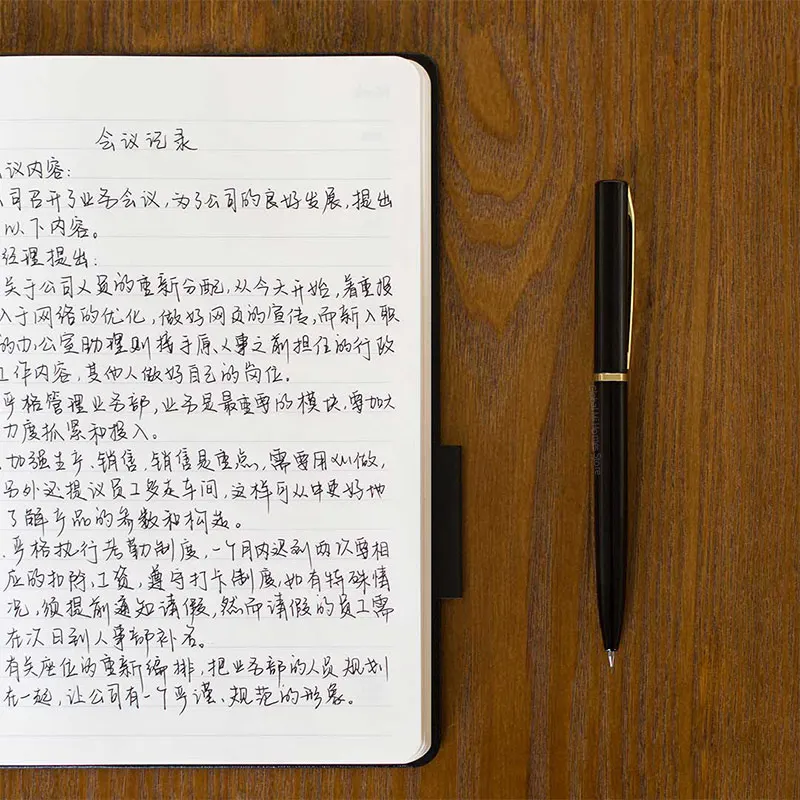 会议记录
议内容：
司召开了业务会议，为了公司的良好发展，提出
以下内容。
经理提出：
关于公司人员的重新分配，从今天开始，着重投
入于网络的优化，做好网页的宣传，而新入职
的办公室助理则接手原人事之前担任的行政
工作内容，其他人做好自己的岗位。
严格管理业务部，业务是最重要的模块，要加大
力度抓紧和投入。
加强生产、销售，销售是重点，需要用心做，
另外还提议员工多走车间，这样可从中更好地
了解产品的参数和构造。
严格执行考勤制度，一个月内迟到两次要相
应的扣除工资，遵守打卡制度，如有特殊情
况，须提前通知请假，然而请假的员工需
在次日到人事部补名。
有关座位的重新编排，把业务部的人员规划
在一起，让公司有一个严谨、规范的形象。
Home Store